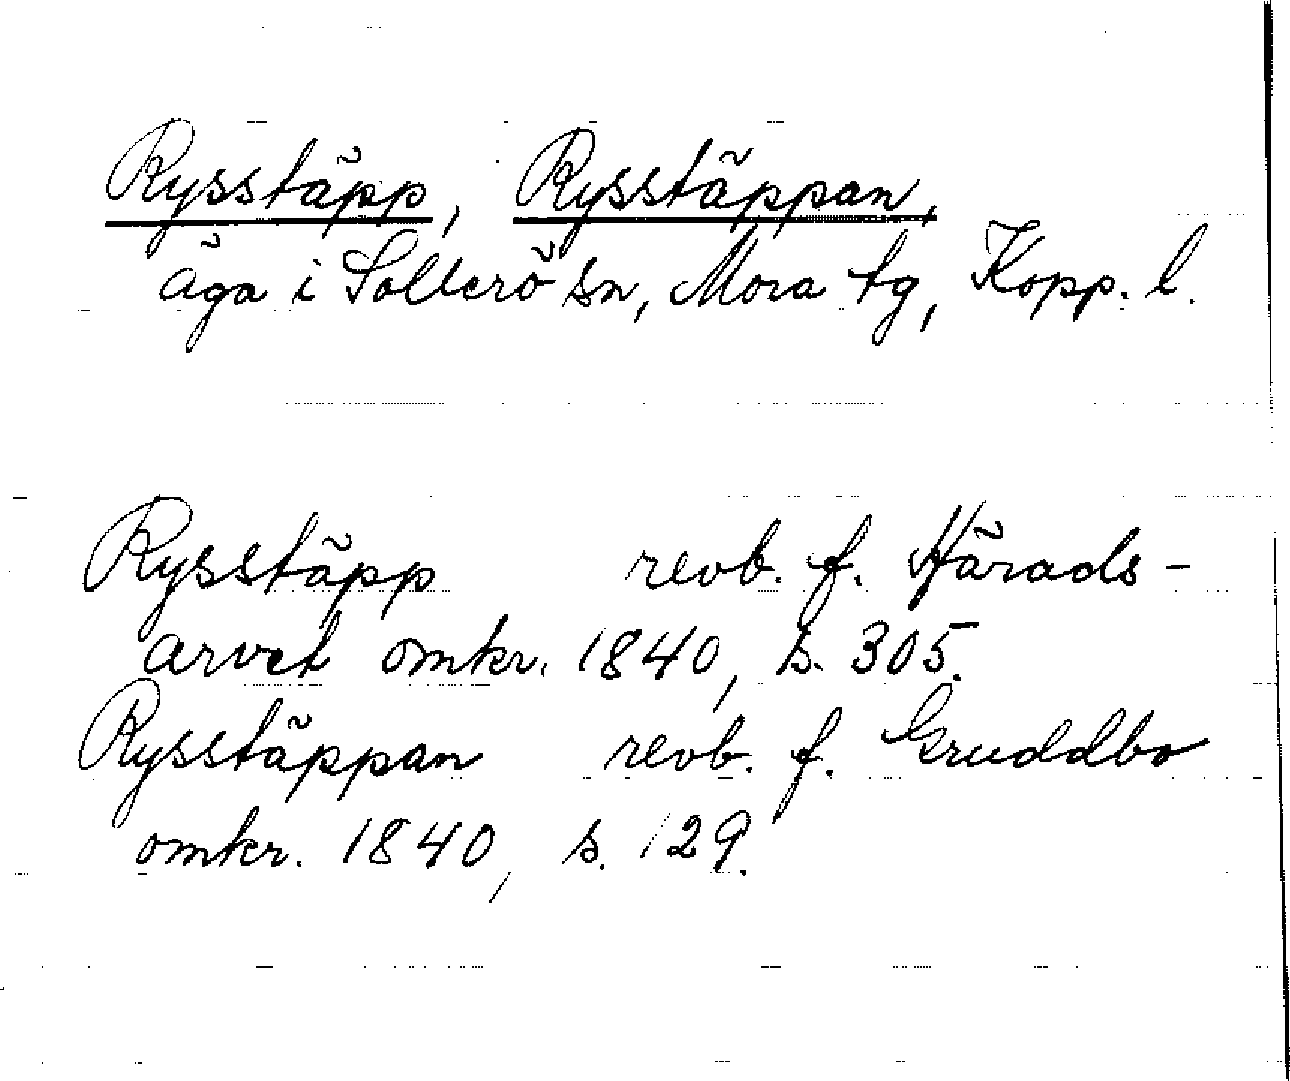 Rysstäpp, Rysstäppan,
äga i Sollerö sn, Mora tg, Kopp. l.
Rysstäpp revb. f. Härads-
arvet omkr. 1840, s. 305.
Rysstäppan revb. f. Gruddbo
omkr. 1840, s. 129.